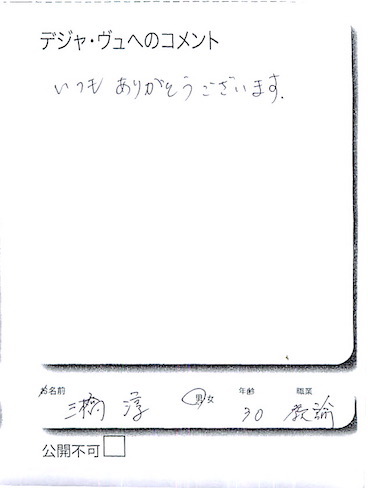 デジャ・ヴュへのコメント
いつもありがとうございます.
お名前 男 女 年齢 職業
三橋 淳 30 教諭
公開不可